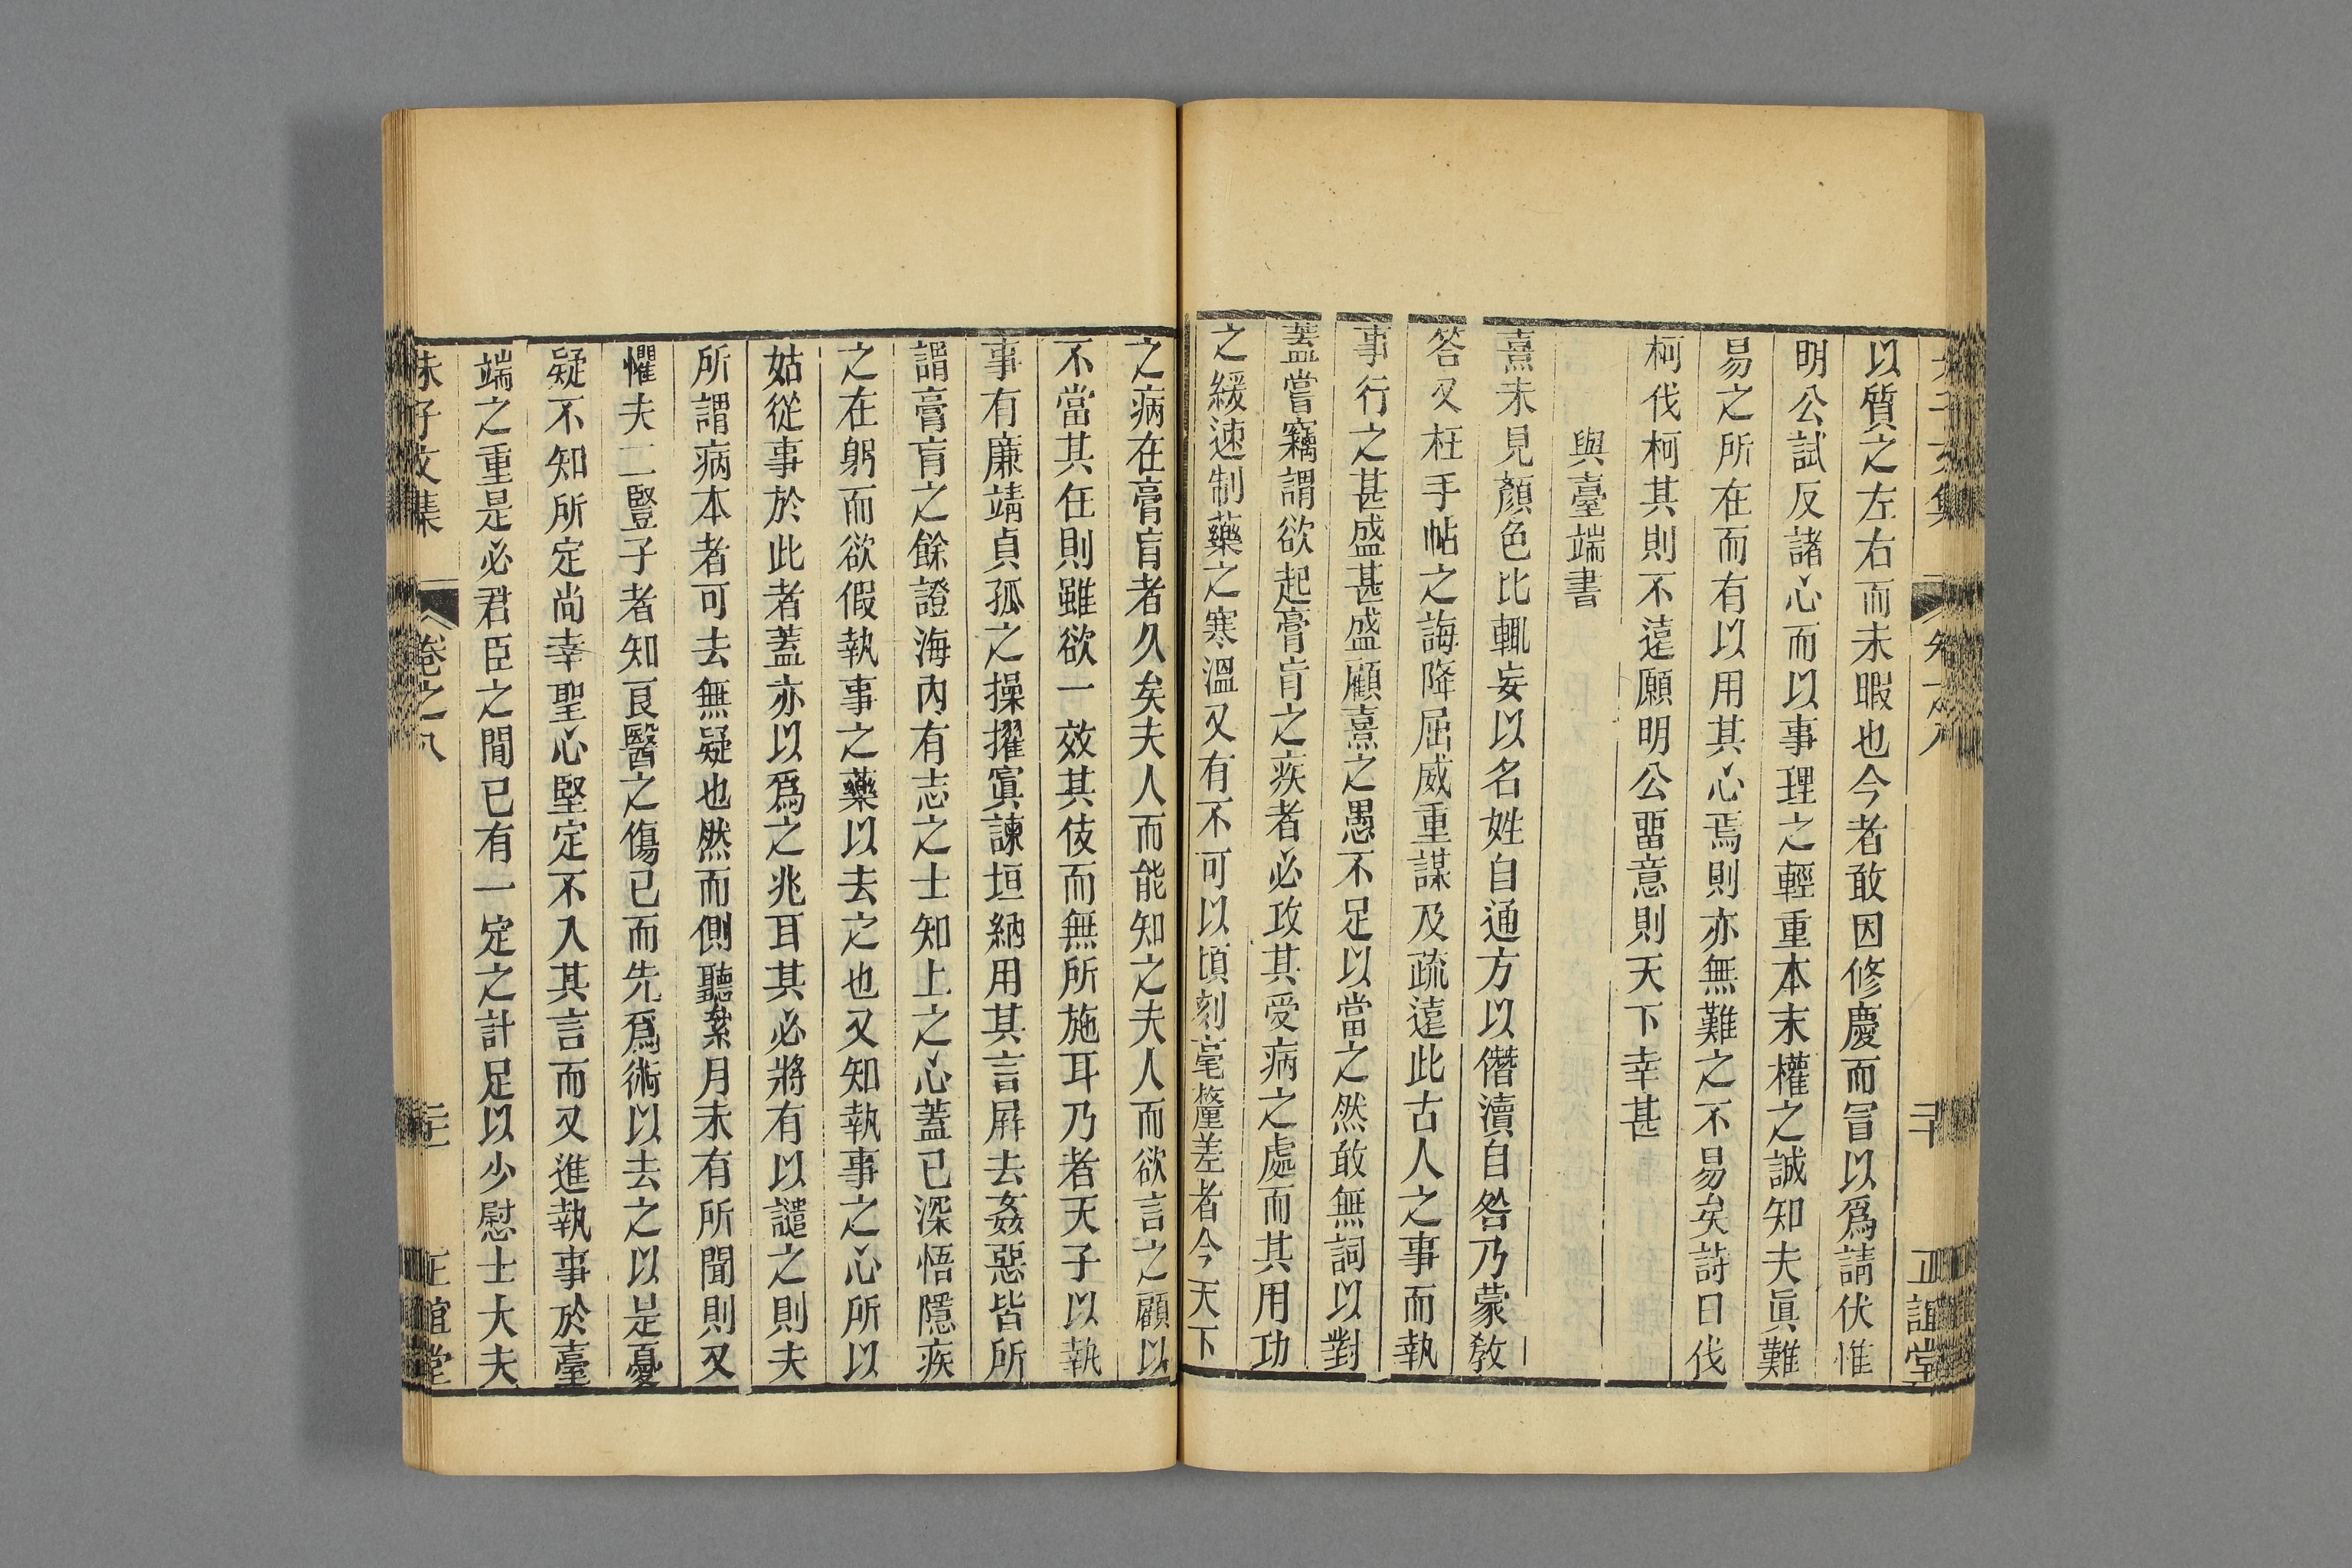 以質之左右而未暇也今者敢因修慶而冒以爲請伏惟
明公試反諸心而以事理之輕重本末權之誠知夫眞難
易之所在而有以用其心焉則亦無難之不易矣詩曰伐
柯伐柯其則不遠願明公畱意則天下幸甚
與臺端書
熹未見顏色比輒妄以名姓自通方以僭瀆自咎乃蒙敎
答又枉手帖之誨降屈威重謀及疏遠此古人之事而執
事行之甚盛甚盛顧熹之愚不足以當之然敢無詞以對
蓋嘗竊謂欲起膏肓之疾者必攻其受病之處而其用功
之緩速制藥之寒溫又有不可以頃刻毫釐差者今天下
之病在膏肓者久矣夫人而能知之夫人而欲言之顧以
不當其任則雖欲一效其伎而無所施耳乃者天子以執
事有廉靖貞孤之操擢寘諫垣納用其言屛去姦惡皆所
謂膏肓之餘證海內有志之士知上之心蓋已深悟隱疾
之在躬而欲假執事之藥以去之也又知執事之心所以
姑從事於此者蓋亦以爲之兆耳其必將有以譴之則夫
所謂病本者可去無疑也然而側聽累月未有所聞則又
懼夫二豎子者知良醫之傷己而先爲術以去之以是憂
疑不知所定尚幸聖心堅定不入其言而又進執事於臺
端之重是必君臣之間已有一定之計足以少慰士大夫
朱子文集
卷之八
正誼堂